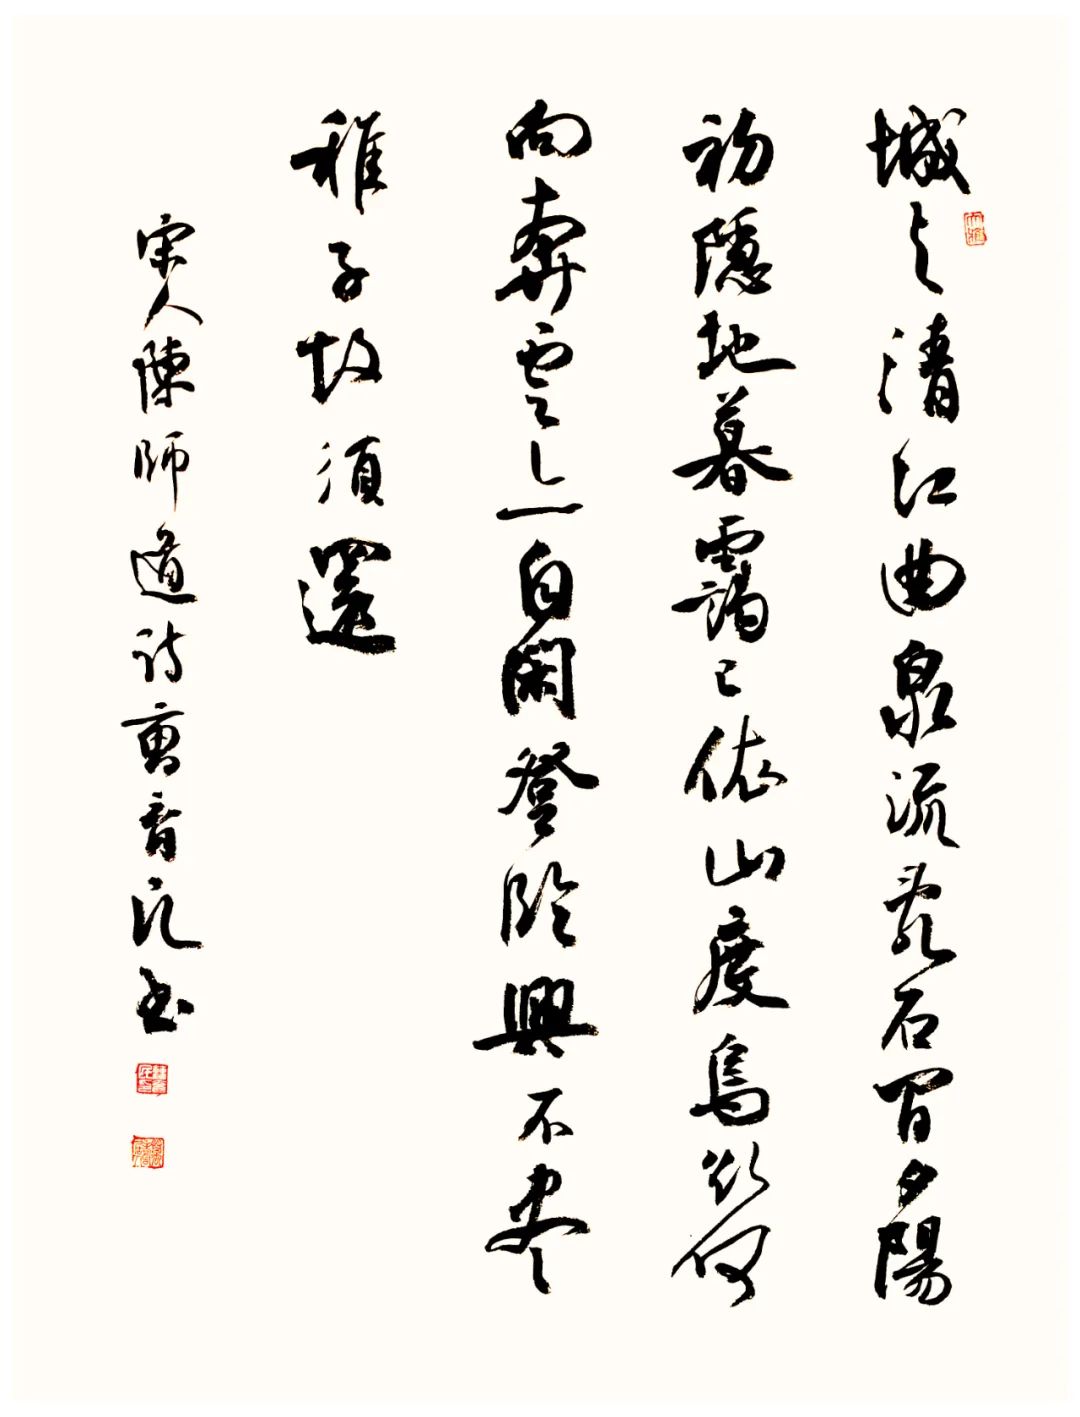 城与清江曲泉流亂石間夕陽
初隱地暮靄已依山度鳥欲何
向奔雲亦自閑登臨興不盡
稚子故須還
宋人陳師道詩 書